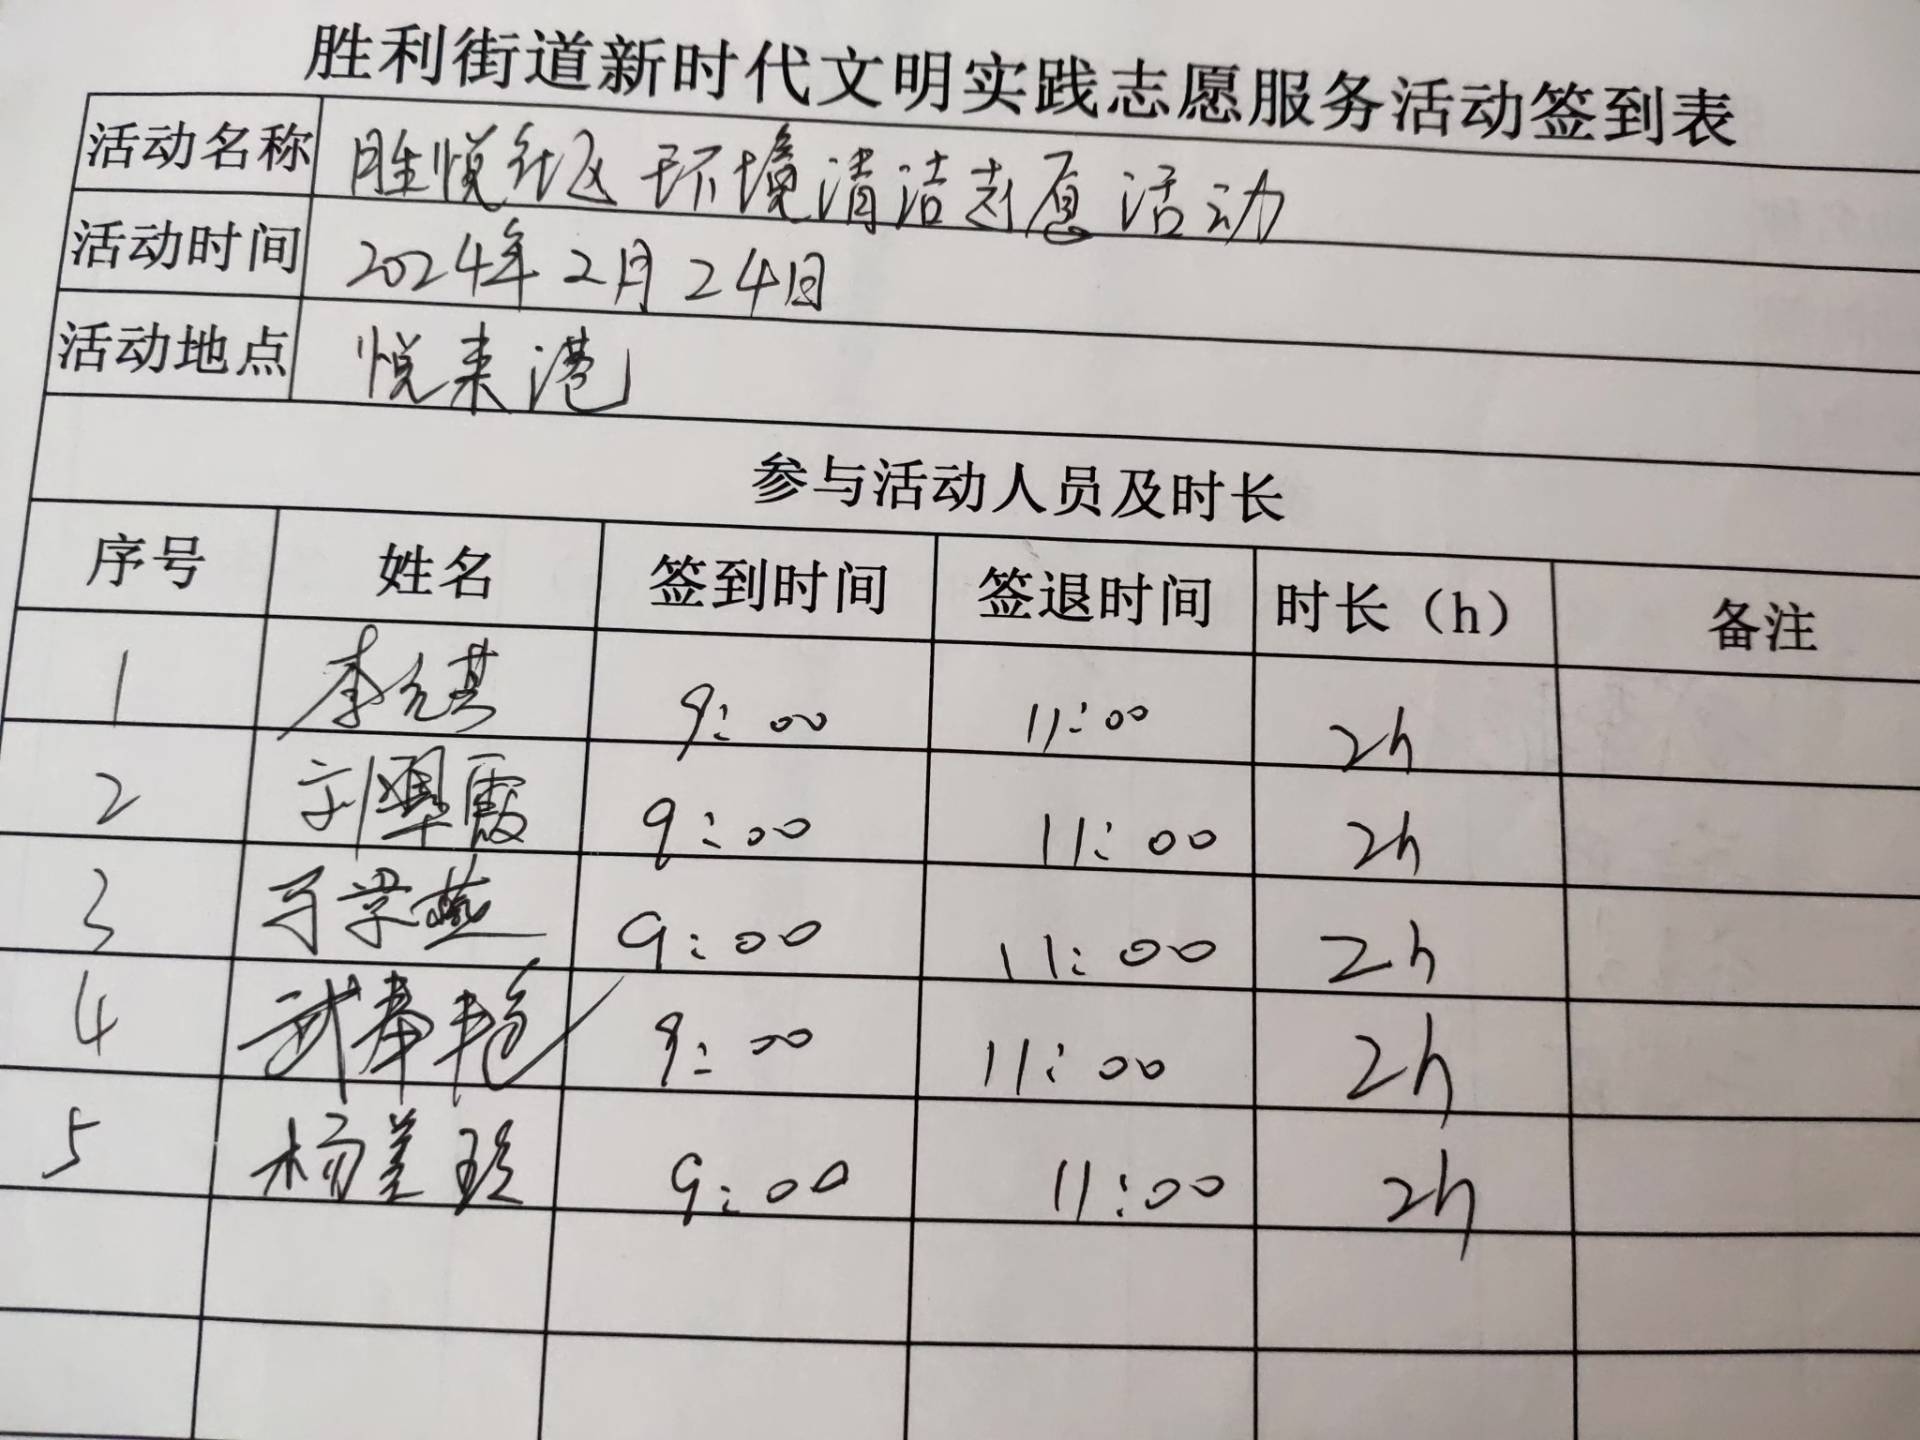 胜利街道新时代文明实践志愿服务活动签到表
活动名称 胜悦社区环境清洁志愿活动
活动时间 2024年2月24日
活动地点 悦来港
参与活动人员及时长
序号 姓名 签到时间 签退时间 时长（h） 备注
1 李允其 9:00 11:00 2h
2 刘翠霞 9:00 11:00 2h
3 9:00 11:00 2h
4 武春艳 9:00 11:00 2h
5 杨美玲 9:00 11:00 2h